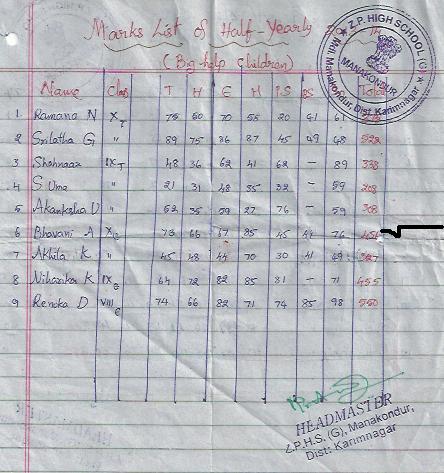 Marks List of Half-Yearly
(Big-help Children)
Z.P. HIGH SCHOOL (G)
MANAKONDUR
Mdl. Manakondur, Dist: Karimnagar
Name Class T H E H P.S BS Total
1 Ramana N X 75 60 70 55 20 41 61
2 Srilatha G " 89 75 86 87 45 49 68 522
3 Shahnaaz IX 48 36 62 41 62 - 89 338
4 S Uma " 21 31 48 35 32 - 59 208
5 Akanksha U " 52 35 59 27 76 - 59 308
6 Bhavani A X 73 66 67 85 45 44 76
7 Akhila K " 45 48 44 70 30 41 49 327
8 Niharika K IX 64 72 82 85 81 - 71 455
9 Renuka D VIII 74 66 82 71 74 85 98 550
HEADMASTER
Z.P.H.S. (G), Manakondur,
Dist: Karimnagar